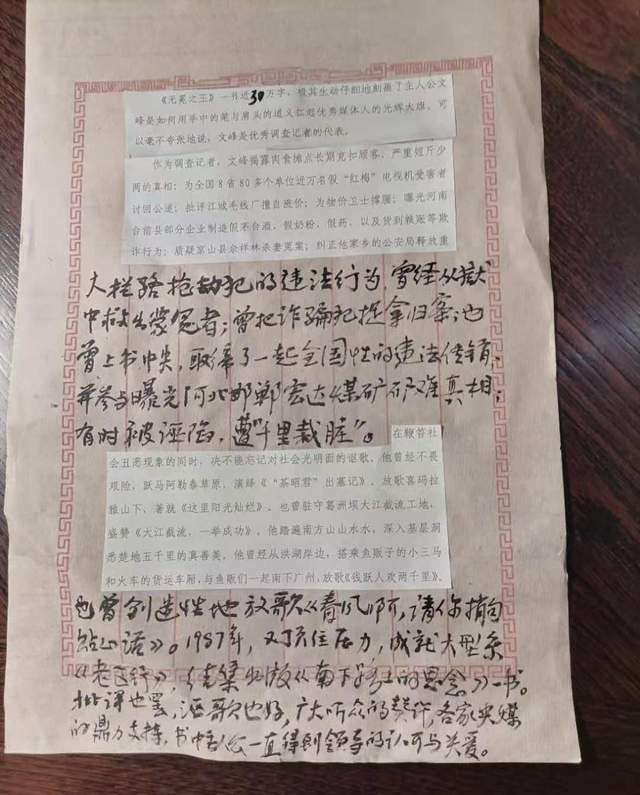 《无冕之王》一书近30万字，极其生动仔细地刻画了主人公文
峰是如何用手中的笔与肩头的道义扛起优秀媒体人的光辉大雄。可
以毫不夸张地说，文峰是优秀调查记者的代表。
作为调查记者，文峰揭露肉食摊点长期克扣顾客、严重短斤少
两的真相；为全国8省80多个单位近万名假“红梅”电视机受害者
讨回公道；批评江城毛线厂擅自涨价；为物价卫士撑腰；曝光河南
台前县部分企业制造假茅台酒、假奶粉、假药，以及货到赖账等欺
诈行为；质疑京山县佘祥林杀妻冤案；纠正他家乡的公安局释放重
大拦路抢劫犯的违法行为，曾经从狱
中救出蒙冤者；曾把诈骗犯捉拿归案；也
曾上书中央，取缔了一起全国性的违法传销，
并参与曝光河北邯郸宏达煤矿矿难真相；
有时被诬陷，遭“千里栽脏”。
在鞭笞社
会丑恶现象的同时，决不能忘记对社会光明面的讴歌。他曾经不畏
艰险，跃马阿勒泰草原，演绎《“茶昭君”出塞记》。放歌喜玛拉
雅山下，著就《这里阳光灿烂》。也曾驻守葛洲坝大江截流工地，
盛赞《大江截流，一举成功》。他踏遍南方山山水水，深入基层洞
悉楚地五千里的真善美。他曾经从洪湖岸边，搭乘鱼贩子的小三马
和火车的货运车厢，与鱼贩们一起南下广州，放歌《钱跃人欢两千里》。
也曾创造性地放歌《春风啊，请你捎句
贴心话》。1987年，又顶住压力，成就大型系
列《老区行》，结集出版《南下骑士的思念》一书。
批评也罢，讴歌也好，广大听众的赞许，各家央媒
的鼎力支持，书中主人公一直得到领导的认可与关爱。